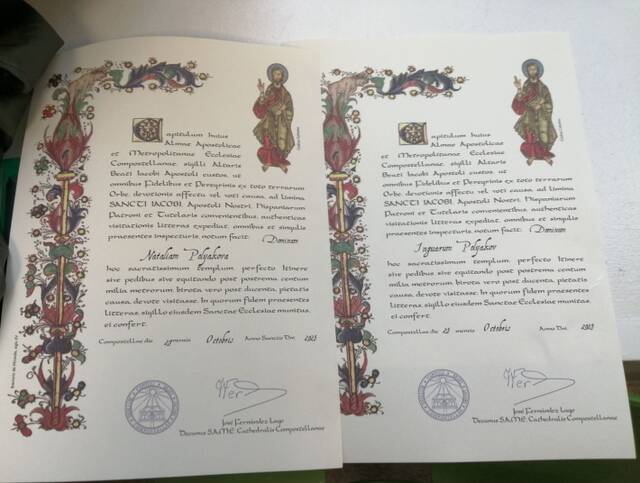 Capitulum huius
Almae Apostolicae
et Metropolitanae Ecclesiae
Compostellanae, sigilli Altaris
Beati Iacobi Apostoli custos, ut
omnibus Fidelibus et Peregrinis ex toto terrarum
Orbe, devotionis affectu vel voti causa, ad limina
SANCTI IACOBI, Apostoli Nostri, Hispaniarum
Patroni et Tutelaris convenientibus, authenticas
visitationis litteras expediat, omnibus et singulis
praesentes inspecturis, notum facit:
Nataliam Polyakova
hoc sacratissimum templum, perfecto Itinere
sive pedibus sive equitando post postrema centum
milia metrorum, birota vero post ducenta, pietatis
causa, devote visitasse. In quorum fidem praesentes
litteras, sigillo eiusdem Sanctae Ecclesiae munitas,
ei confert.
Compostellae die mensis Octobris Anno Dni
José Fernández Lago
Decanus S.A.M.E. Cathedralis Compostellanae
Capitulum huius
Almae Apostolicae
et Metropolitanae Ecclesiae
Compostellanae, sigilli Altaris
Beati Iacobi Apostoli custos, ut
omnibus Fidelibus et Peregrinis ex toto terrarum
Orbe, devotionis affectu vel voti causa, ad limina
SANCTI IACOBI, Apostoli Nostri, Hispaniarum
Patroni et Tutelaris convenientibus, authenticas
visitationis litteras expediat, omnibus et singulis
praesentes inspecturis, notum facit:
Polyakov
hoc sacratissimum templum, perfecto Itinere
sive pedibus sive equitando post postrema centum
milia metrorum, birota vero post ducenta, pietatis
causa, devote visitasse. In quorum fidem praesentes
litteras, sigillo eiusdem Sanctae Ecclesiae munitas,
ei confert.
Compostellae die 23 mensis Octobris Anno Dni
José Fernández Lago
Decanus S.A.M.E. Cathedralis Compostellanae